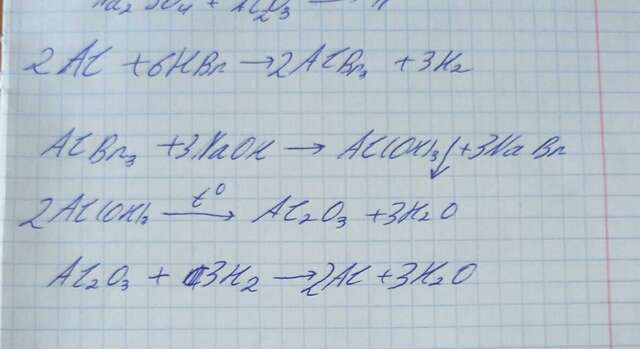 2Al + 6HBr → 2AlBr₃ + 3H₂
AlBr₃ + 3NaOH → Al(OH)₃↓ + 3NaBr
2Al(OH)₃ t° → Al₂O₃ + 3H₂O
Al₂O₃ + 3H₂ → 2Al + 3H₂O